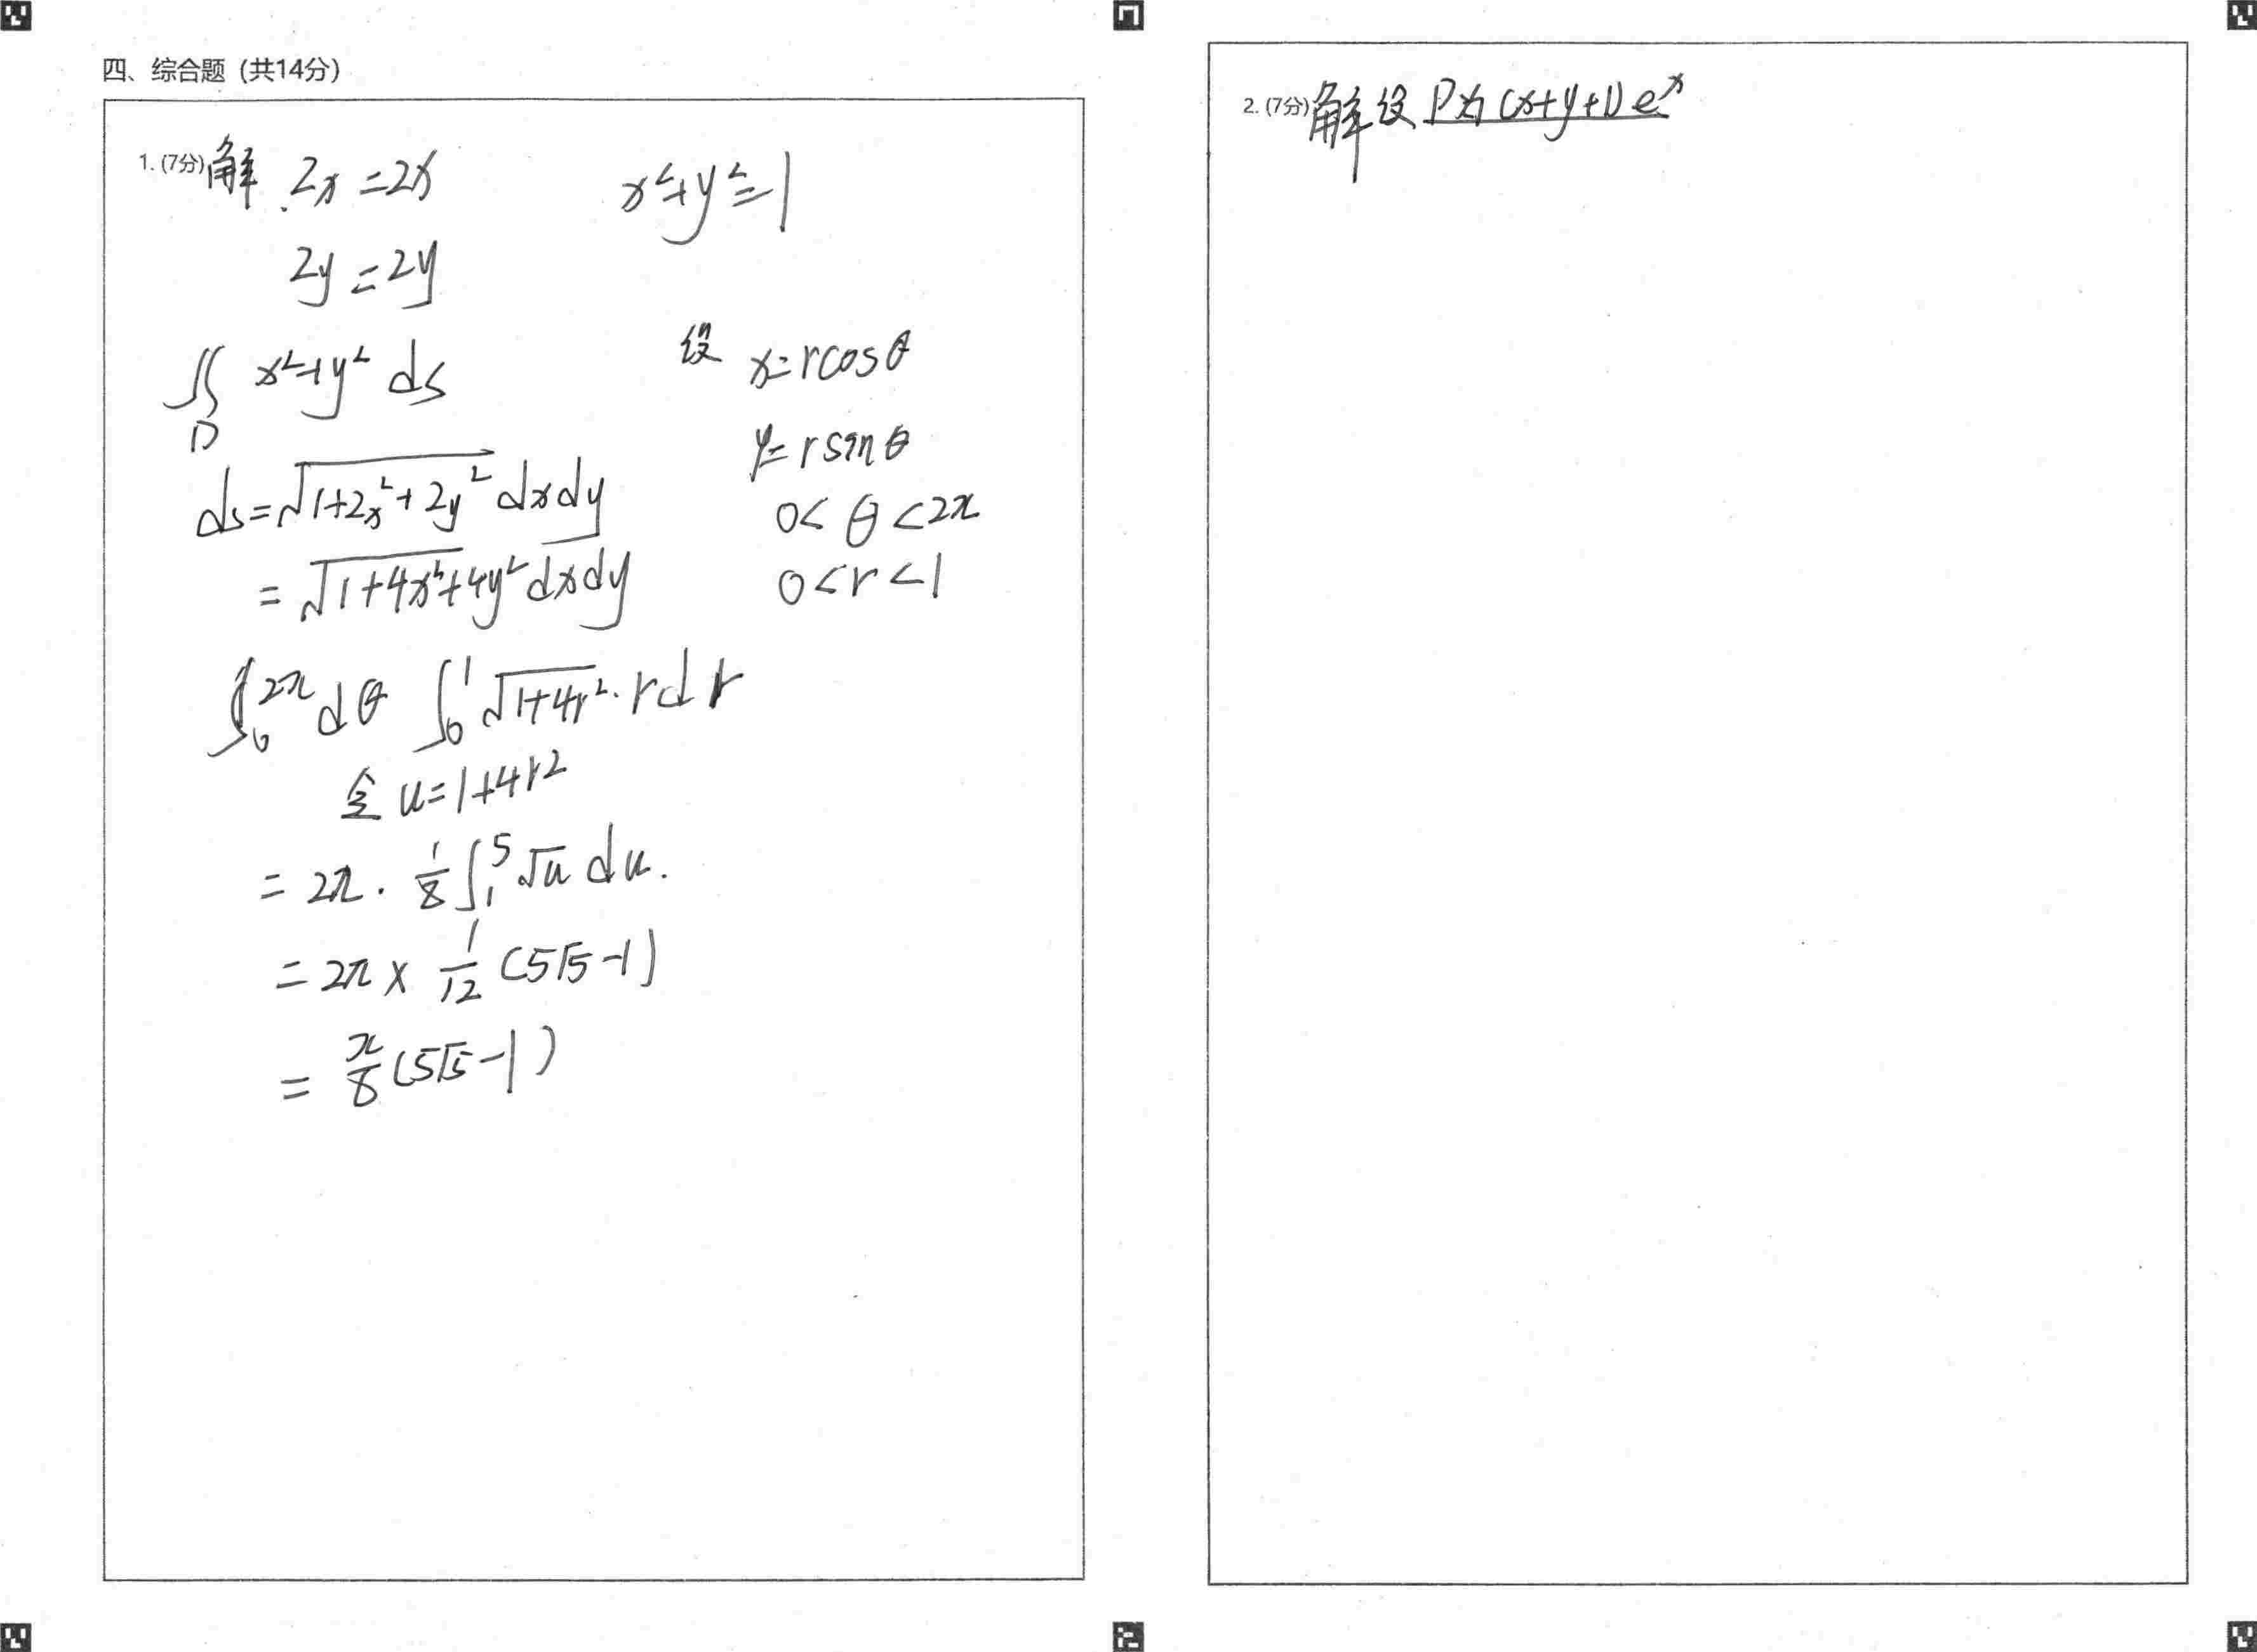 四、综合题 (共14分)
1. (7分) 解 Zx = 2x x²+y²=1
Zy = 2y
∬D x²+y² ds 设 x=rcosθ
y=rsinθ
ds=√(1+Zx²+Zy²) dxdy 0<θ<2π
=√(1+4x²+4y²) dxdy 0<r<1
∫₀^2π dθ ∫₀^1 √(1+4r²)·rdr
令 u=1+4r²
= 2π · 1/8 ∫₁^5 √u du.
= 2π × 1/12 (5√5-1)
= π/8 (5√5-1)
2. (7分) 解 设 P为 (x+y+1) eˣ